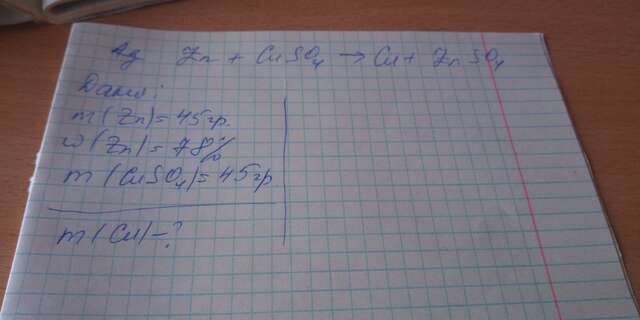 Zn + CuSO4 → Cu + ZnSO4
Дано:
m(Zn)=45гр
w(Zn)=78%
m(CuSO4)=45гр
m(Cu)-?